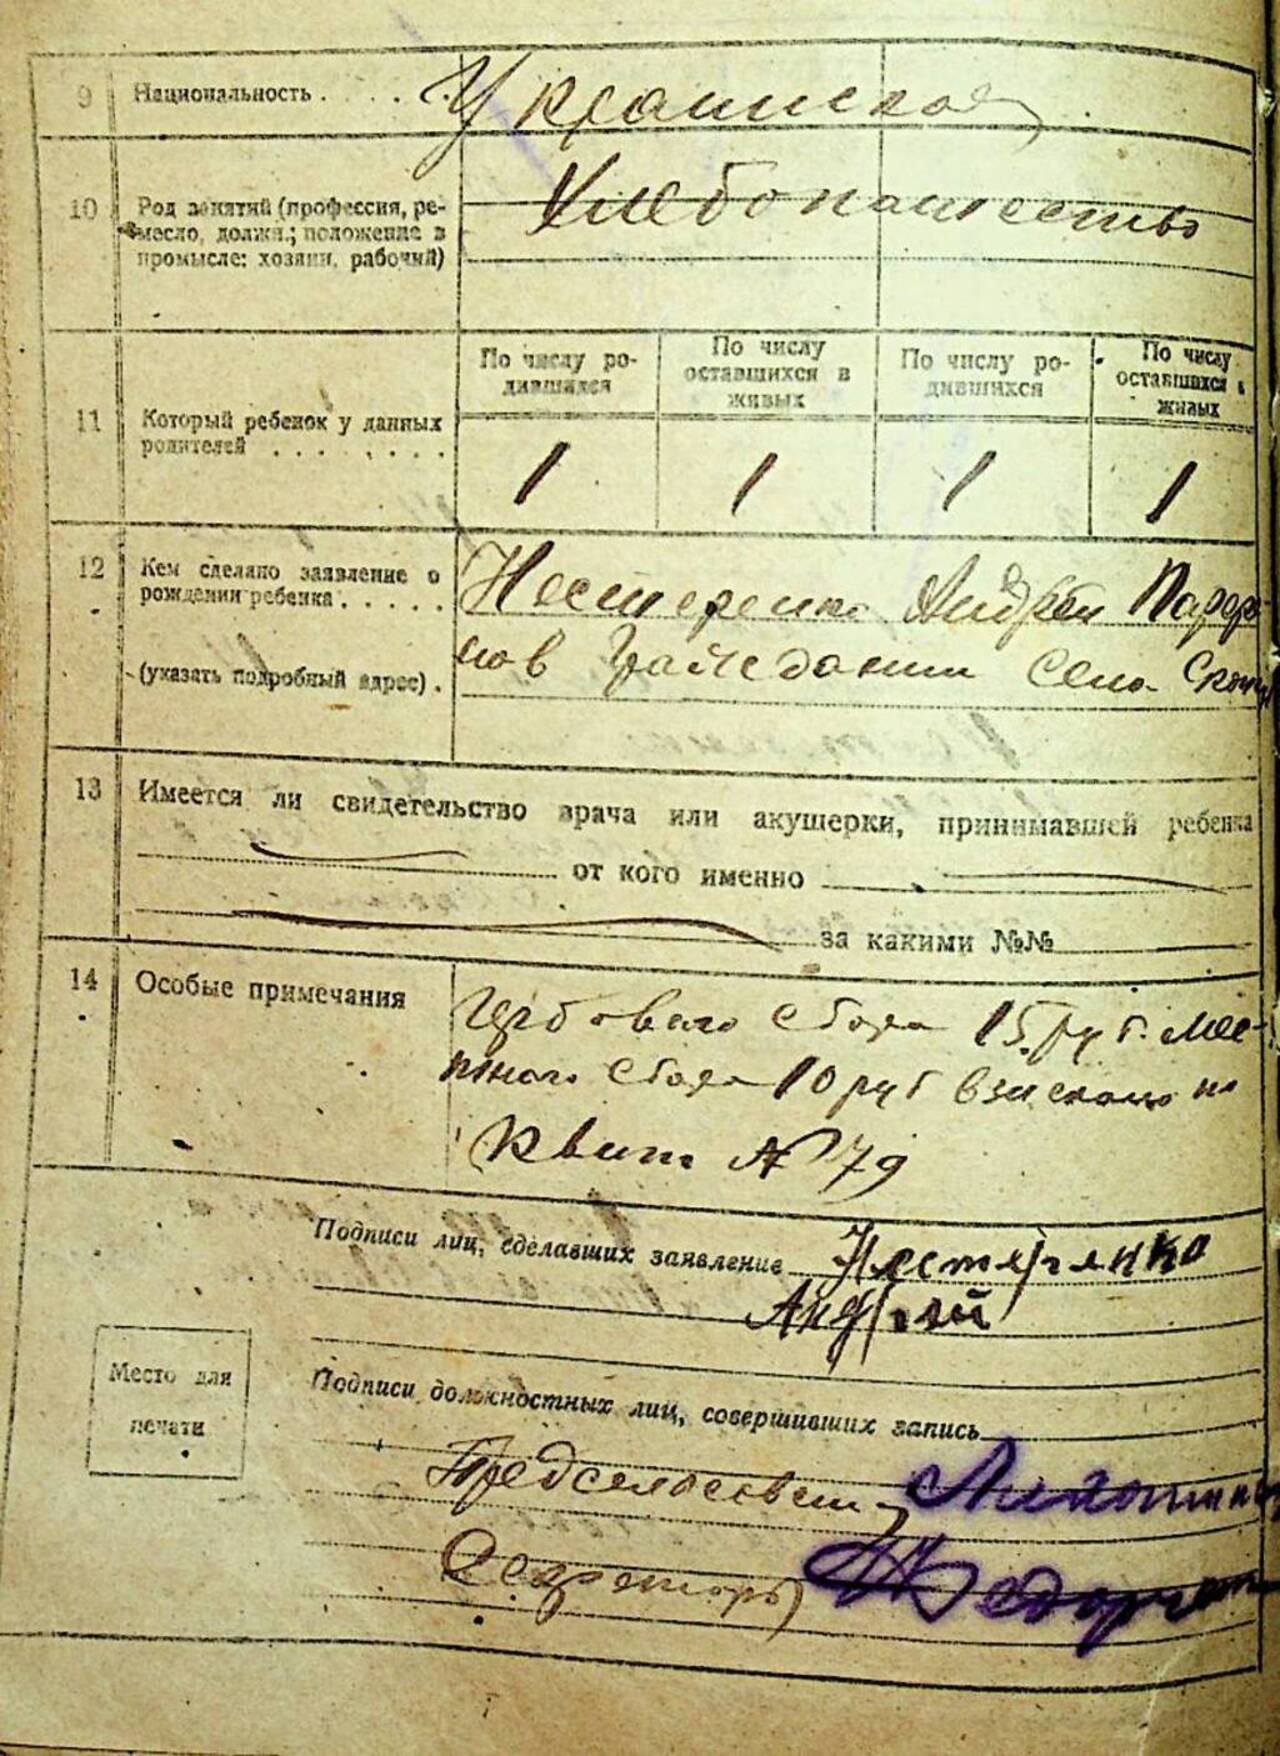 9 Национальность . . . . Украинской
10 Род занятий (профессия, ре-
месло, должн.; положение в
промысле: хозяин, рабочий)
Хлебопашество
По числу ро-
дившихся
По числу
оставшихся в
живых
По числу ро-
дившихся
По числу
оставшихся в
живых
11 Который ребенок у данных
родителей . . . . . . . .
1 1 1 1
12 Кем сделано заявление о
рождении ребенка . . . . .
(указать подробный адрес) .
Нестеренко Андрей
Села
13 Имеется ли свидетельство врача или акушерки, принимавшей ребенка
от кого именно
за какими №№
14 Особые примечания
сбора 15 руб. Мес-
тного сбора 10 руб взыскано по
Квит № 79
Подписи лиц, сделавших заявление Нестеренко
Андрей
Место для
печати
Подписи должностных лиц, совершивших запись
Секретарь